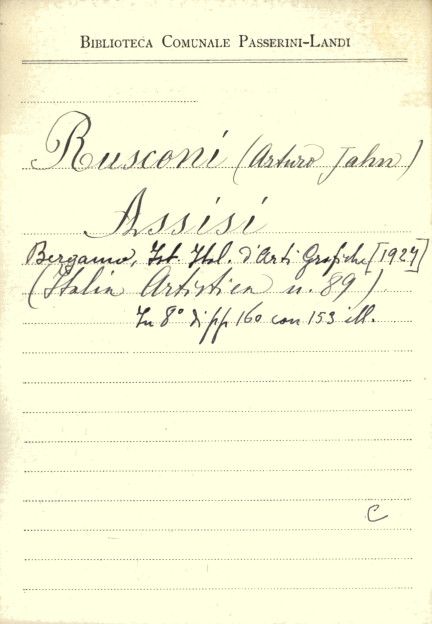 BIBLIOTECA COMUNALE PASSERINI-LANDI
Rusconi (Arturo Jahn)
Assisi
Bergamo, Ist. Ital. d'Arti Grafiche [1927]
(Italia Artistica n. 89)
In 8° di pp 160 con 153 ill.
C